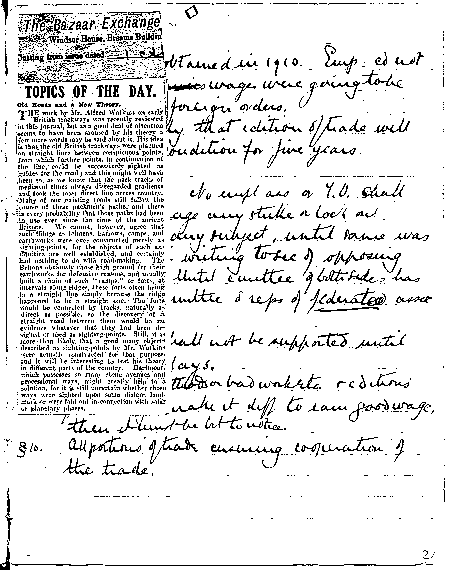 The Bazaar, Exchange
Windsor House, Breams Buildin
Cutting from issue dated
TOPICS OF THE DAY.
Old Roads and a New Theory.
THE work by Mr. Alfred Watkins on early
British trackways was recently reviewed
in this journal, but as a good deal of attention
seems to have been aroused by his theory a
few more words may be said about it. His idea
is that the old British trackways were planned
on straight lines between conspicuous points,
from which further points, in continuation of
the line, could be successively sighted as
guides for the road; and this might well have
been so, as we know that the pack tracks of
mediæval times always disregarded gradients
and took the most direct line across country.
Many of our existing roads still follow the
course of these packmen's paths, and there
is every probability that those paths had been
in use ever since the time of the ancient
Britons. We cannot, however, agree that
such things as tumuli, barrows, camps, and
earthworks were ever constructed merely as
sighting-points, for the objects of such
are well established, and certainly
had nothing to do with road-making. The
Britons obviously chose high ground for their
earthworks for defensive reasons, and usually
built a chain of such "camps," or forts, at
intervals along ridges, these forts often being
in a straight line simply because the ridge
happened to be a straight one. The forts
would be connected by tracks, naturally as
direct as possible, so the discovery of a
straight road between them would be no
evidence whatever that they had been de-
signed or used as sighting-points. Still, it is
more than likely that a good many objects
described as sighting-points by Mr. Watkins
were actually constructed for that purpose
and it will be interesting to test his theory
in different parts of the country. Dartmoor,
which possesses so many stone avenues and
processional ways, might greatly help to a
solution, for it is still uncertain whether these
ways were sighted upon some distant land-
mark or were laid out in connection with solar
or planetary phases.
obtained in 1910. Emp: cd not
wages were going to be
foreign orders.
by that edition of trade will
condition for five years.
No empl ass or T.U. shall
age any strike or lock out
any subject, until same was
writing to sec of opposing
Until cmittee of both sides has
mittee & reps of federated assoc
hall not be supported until
days.
or bad workets r editions
make it diff to earn good wage,
then it must be left to notice.
§ 10. All portions of trade ensuring cooperation of
the trade.
2